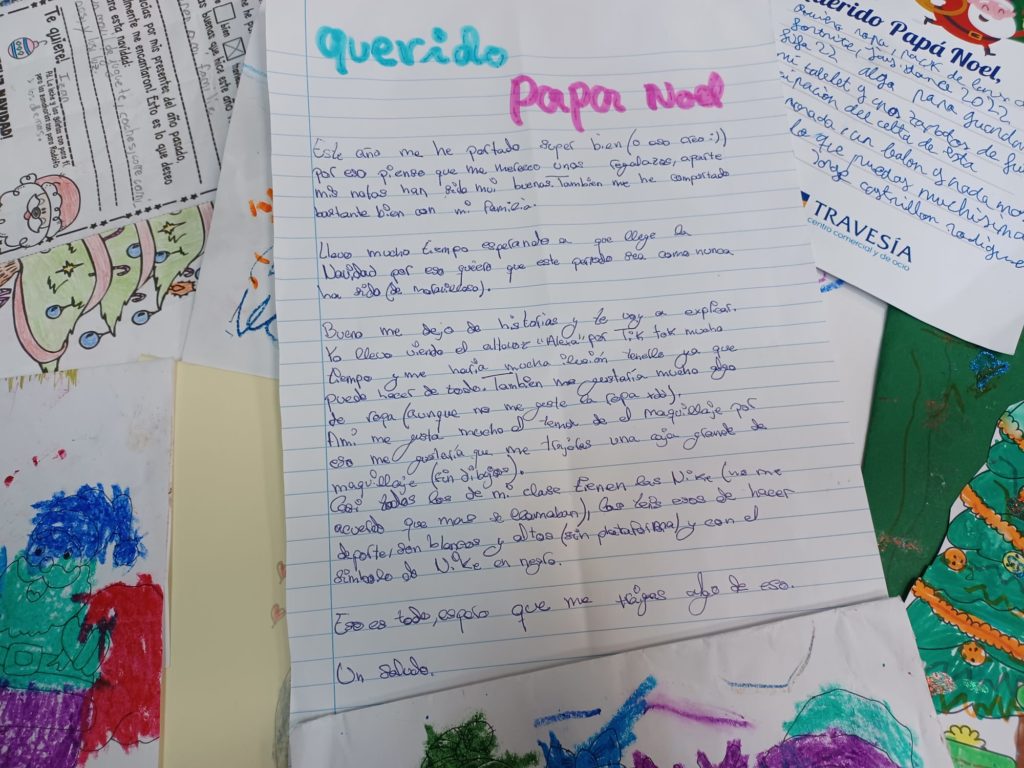 querido
Papa Noel
Este año me he portado super bien (o eso creo :))
por eso pienso que me merezco unos regalazos, aparte
mis notas han sido mui buenas. Tambien me he comportado
bastante bien con mi familia.
Llevo mucho tiempo esperando a que llege la
Navidad por eso quiero que este periodo sea como nunca
ha sido (de maravilloso).
Bueno me dejo de historias y te voy a explicar.
Yo llevo viendo el altavoz "Alexa" por Tik tok mucho
tiempo y me haria mucha ilusión tenello ya que
puede hacer de todo. Tambien me gustaría mucho algo
de ropa (aunque no me guste la ropa xd).
Ami me gusta mucho el tema de el maquillaje por
eso me gustaría que me trajeras una caja grande de
maquillaje (sin dibujos).
Casi todos los de mi clase tienen las Nike (no me
acuerdo que mas se llamaban), las teis esas de hacer
deporte, son blancas y altas (sin plataforma) y con el
simbolo de Nike en negro.
Eso es todo, espero que me tráigas algo de eso.
Un saludo.
Querido Papá Noel,
quiero ropa, pack de
fortnite, Just dance 2022
fifa 22, algo para guardar
mi tablet y unos zarcillos de
del celta de esta
monada, un balon y nada mas
lo que puedas muchisima
Jorge castrillon rodrigue
TRAVESÍA
centro comercial y de ocio
Te quiere,
gracias por mis presentes del año pasado,
me encantaron! Esto es lo que deseo
para esta navidad:
NAVIDAD!